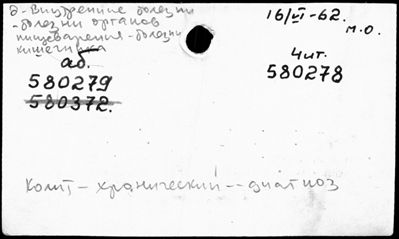 д-Внутренние болезни
-болезни органов
пищеварения-болезни
кишечника
аб.
580279
580372.
16/VI-62.
м.о.
Чит.
580278
Колит-хронический--диагноз